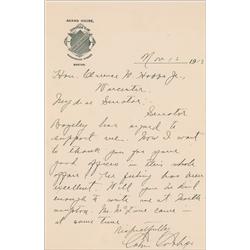 ADAMS HOUSE,
BOSTON.
Nov. 12 1912
Hon. Clarence W. Hobbs Jr.,
Worcester.
My dear Senator:
Senator
Bagley has agreed to
support me. Now I want
to thank you for your
good offices in this whole
affair. Free feeling has been
excellent. Will you be kind
enough to write me at North
ampton.
at same time
Respectfully,
Calvin Coolidge